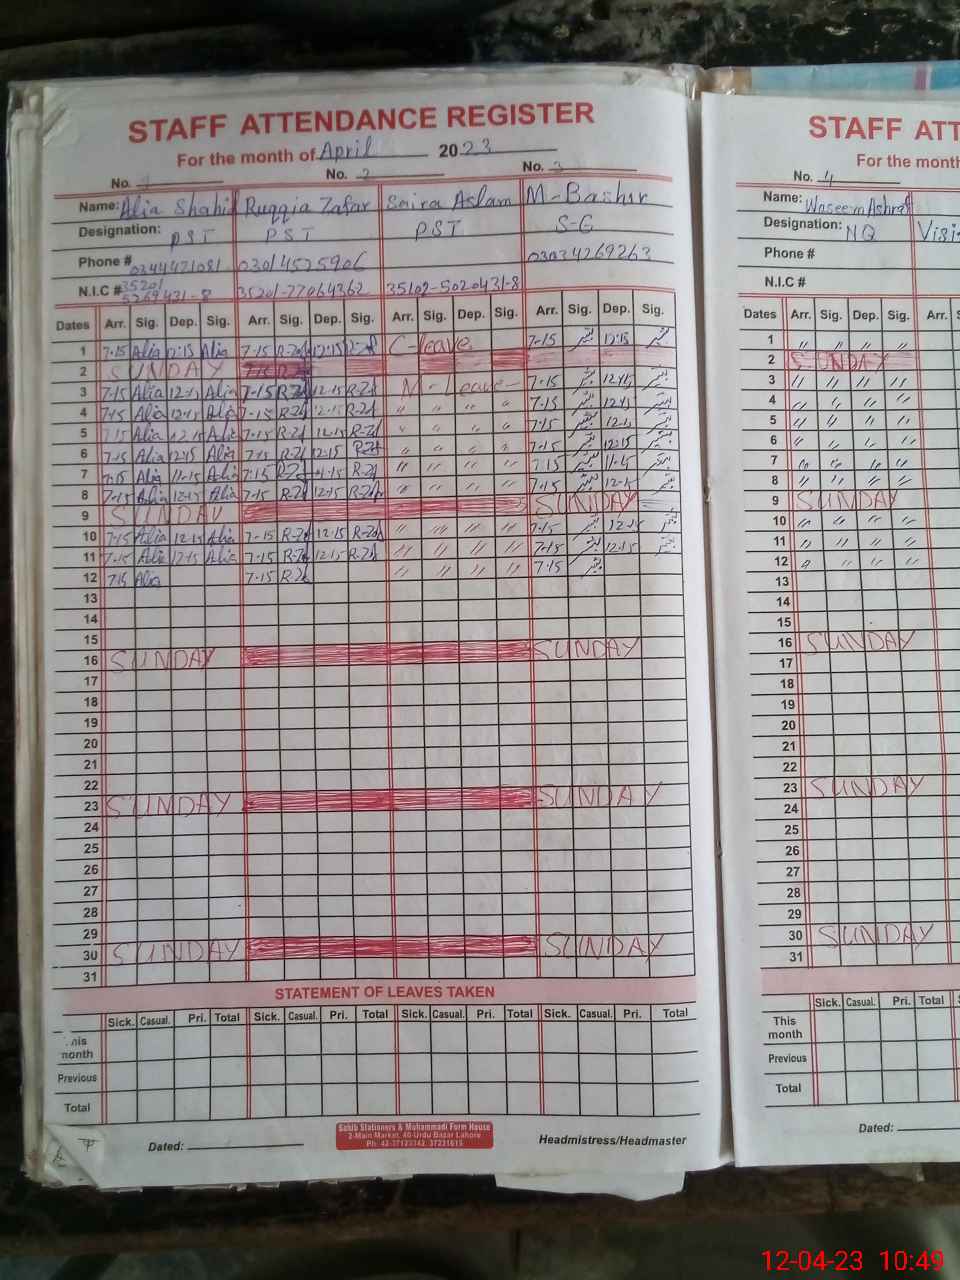 STAFF ATTENDANCE REGISTER
For the month of April 2023
No. 1 No. 2 No. 3
Name: Alia Shahid Ruqqia Zafar Saira Aslam M-Bashir
Designation: PST PST PST S-G
Phone # 03014525906
N.I.C # 35201 35102-5020431-8
Dates Arr. Sig. Dep. Sig. Arr. Sig. Dep. Sig. Arr. Sig. Dep. Sig. Arr. Sig. Dep. Sig.
1 7-15 Alia 12:15 Alia 7-15 R-Zaf 12:15 C-leave 7-15 12:15
2 SUNDAY
3 7-15 Alia 12-15 Alia 7-15 R-Zaf 12-15 R-Zaf M-Leave 7-15 12-15
4 7-15 Alia 12-15 Alia 7-15 R-Zaf 12-15 R-Zaf " " " " 7-15 12-15
5 7-15 Alia 12-15 Alia 7-15 R-Zaf 12-15 R-Zaf " " " " 7-15 12-15
6 7-15 Alia 12-15 Alia 7-15 R-Zaf 12-15 R-Zaf " " " " 7-15 12-15
7 7-15 Alia 11-15 Alia 7-15 R-Zaf 11-15 R-Zaf " " " " 7-15 11-15
8 7-15 Alia 12-15 Alia 7-15 R-Zaf 12-15 R-Zaf " " " " 7-15 12-15
9 SUNDAY SUNDAY
10 7-15 Alia 12-15 Alia 7-15 R-Zaf 12-15 R-Zaf " " " " 7-15 12-15
11 7-15 Alia 12-15 Alia 7-15 R-Zaf 12-15 R-Zaf " " " " 7-15 12-15
12 7-15 Alia 7-15 R-Zaf " " " " 7-15
13
14
15
16 SUNDAY SUNDAY
17
18
19
20
21
22
23 SUNDAY SUNDAY
24
25
26
27
28
29
30 SUNDAY SUNDAY
31
STATEMENT OF LEAVES TAKEN
Sick. Casual. Pri. Total Sick. Casual. Pri. Total Sick. Casual. Pri. Total Sick. Casual. Pri. Total
month
Previous
Total
Dated:
Sahib Stationers & Muhammadi Form House
2-Main Market, 40-Urdu Bazar Lahore
Headmistress/Headmaster
STAFF ATT
For the month
No. 4
Name: Waseem Ashraf
Designation: NQ
Phone #
N.I.C #
Dates Arr. Sig. Dep. Sig. Arr.
1 " " " "
2 SUNDAY
3 " " " "
4 " " " "
5 " " " "
6 " " " "
7 " " " "
8 " " " "
9 SUNDAY
10 " " " "
11 " " " "
12 " " " "
13
14
15
16 SUNDAY
17
18
19
20
21
22
23 SUNDAY
24
25
26
27
28
29
30 SUNDAY
31
Sick. Casual. Pri. Total
This month
Previous
Total
Dated:
12-04-23 10:49